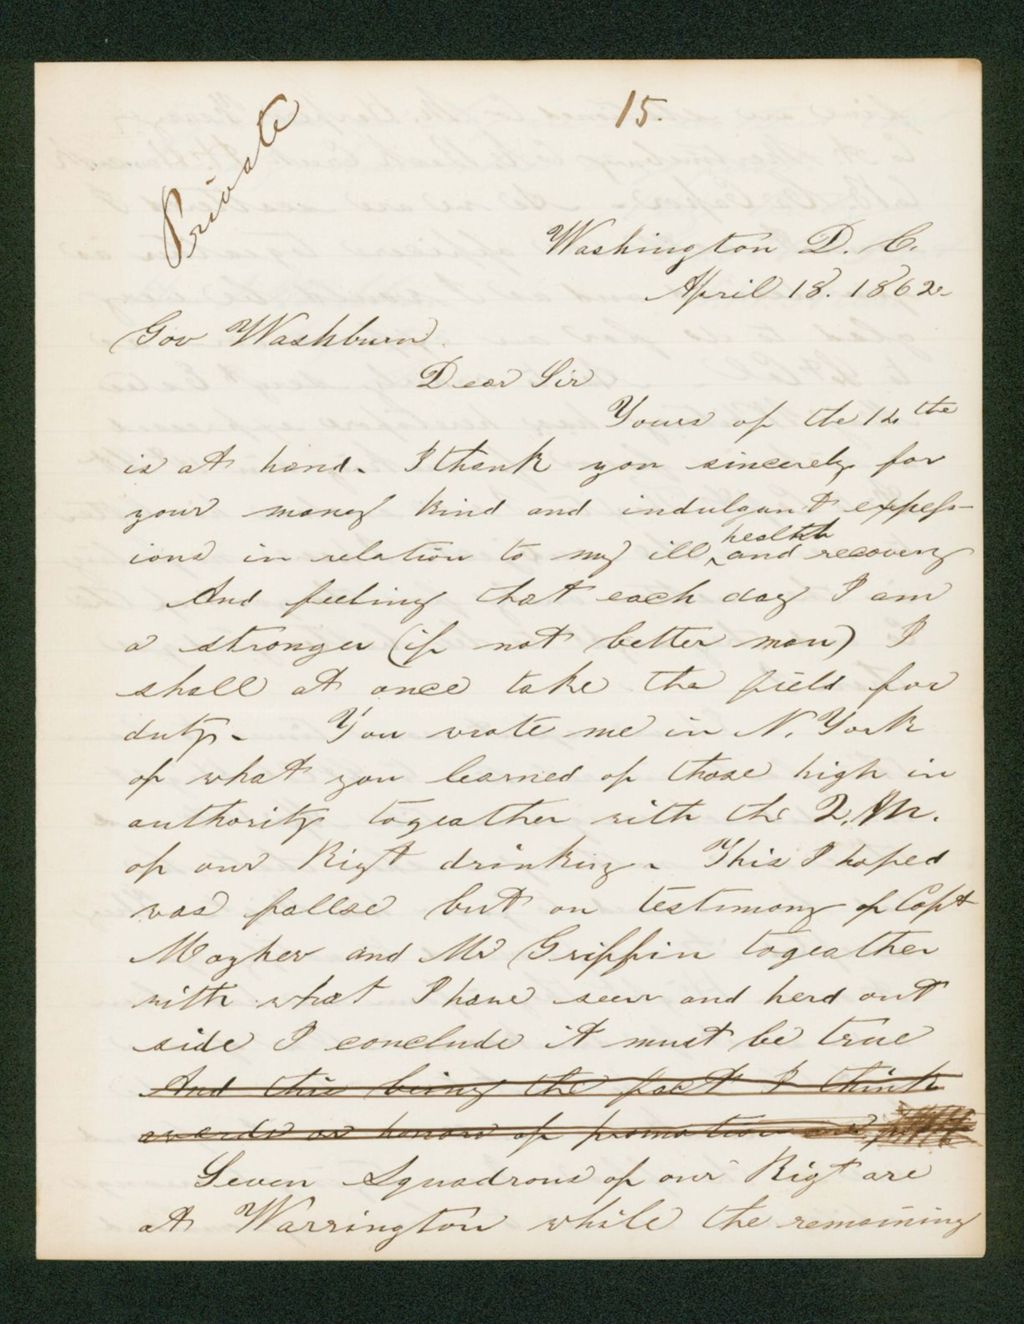 Private
15.
Washington D. C.
April 18. 1862.
Gov Washburn.
Dear Sir
Yours of the 12 the
is at hand. I thank you sincerely for
your maney kind and indulgant express-
ions in relation to my ill health and recovery
And feeling that each day I am
a stronger (if not better man) I
shall at once take the field for
duty. You wrote me in N. York
of what you learned of those high in
authority togeather with the Q. M.
of our Rigt drinking. This I hoped
was fallse but on testimony of Capt
Mayhew and Mr Griffin togeather
with what I have seen and herd out
side I conclude it must be true
And this being the fact I think
awards or honors of promotion
Seven Squadrons of our Rigt are
at Warrington while the remaining